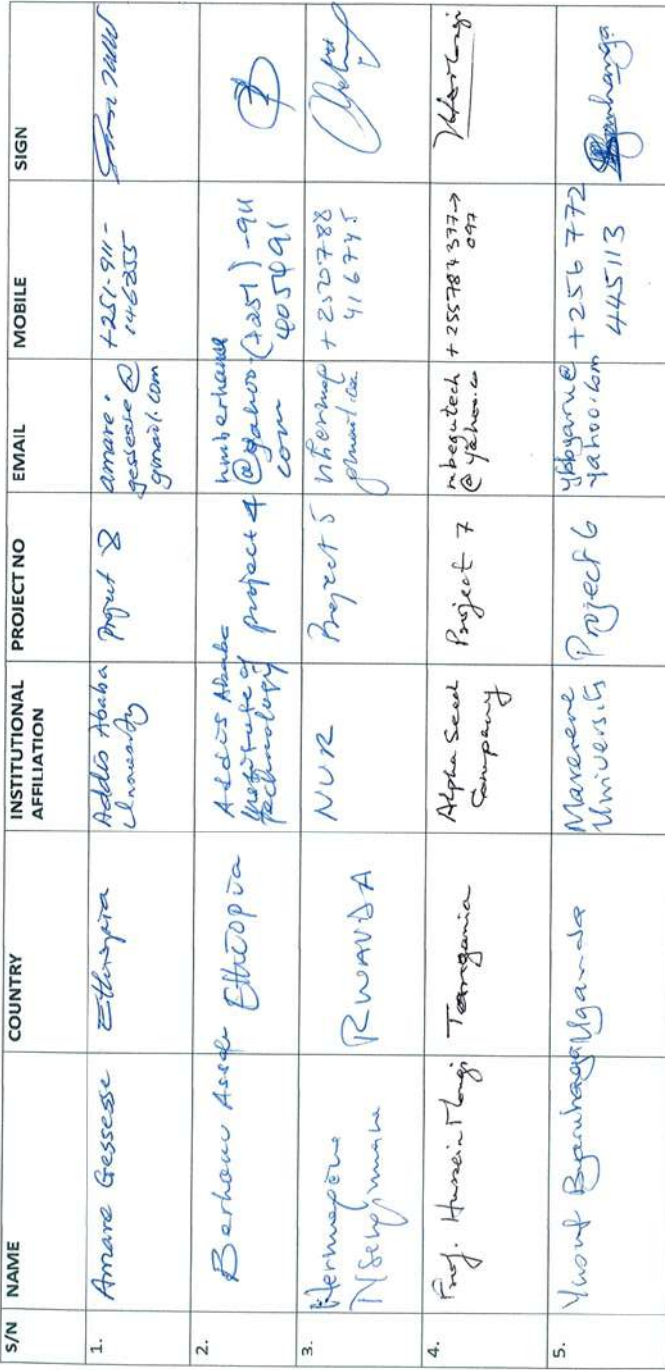 S/N NAME COUNTRY INSTITUTIONAL AFFILIATION PROJECT NO EMAIL MOBILE SIGN
1. Amare Gessesse Ethiopia Addis Ababa University Project 8 amare.gessesse@gmail.com +251-911-146355
2. Berhanu Assefa Ethiopia Addis Ababa Institute of Technology project 4 @yahoo.com (+251)-911
3. RWANDA NUR Project 5 +250788 416745
4. Prof. Hussein Mongi Tanzania Alpha Seed Company Project 7 mbegutech @yahoo.co + 255784 377→ 097
5. Yusuf Byaruhanga Uganda Makerere University Project 6 ykbyaru@yahoo.com +256 772 445113